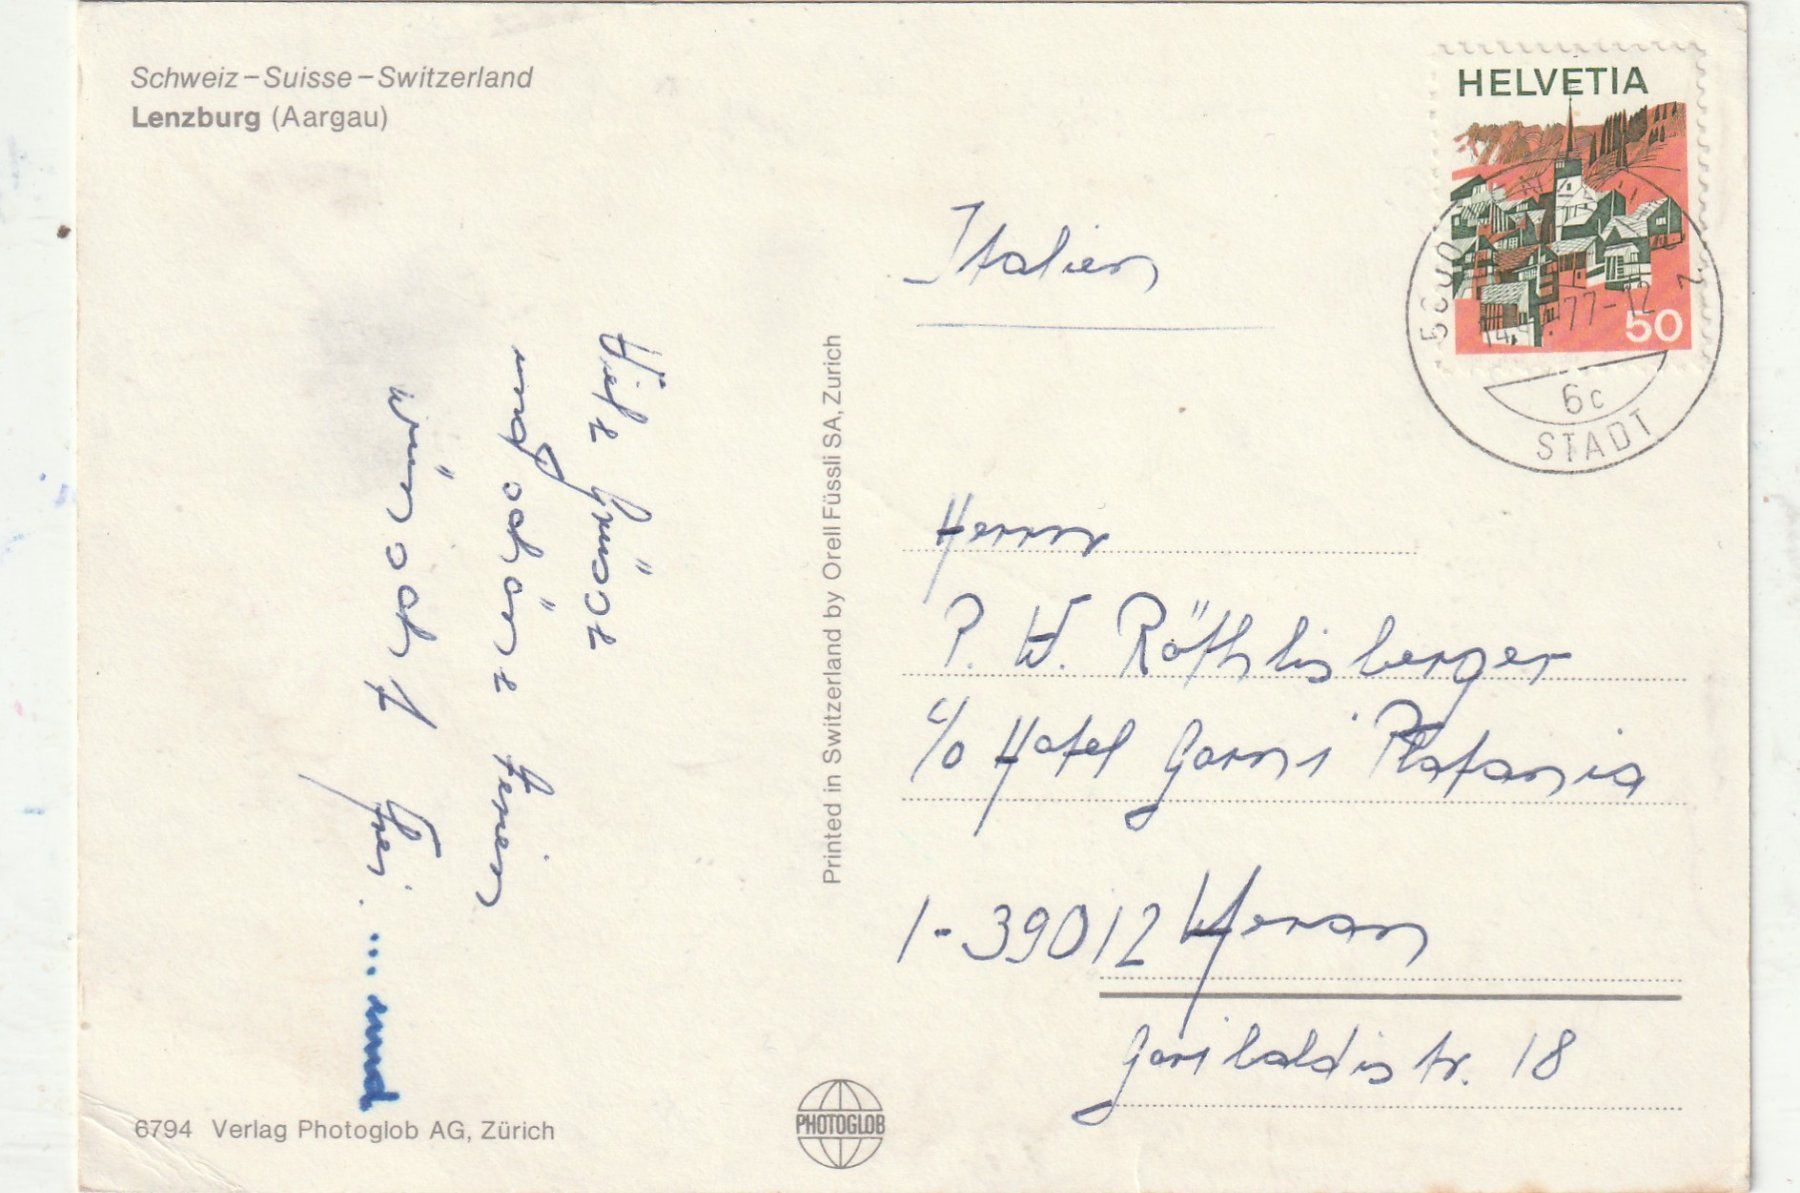 Schweiz – Suisse – Switzerland
Lenzburg (Aargau)
Viele Grüsse
und schöne Ferien
wünscht Frei.
... und
6794 Verlag Photoglob AG, Zürich
Printed in Switzerland by Orell Füssli SA, Zurich
PHOTOGLOB
HELVETIA
50
77-12
6c
STADT
Italien
Herrn
P. W. Röthlisberger
c/o Hotel Garni Platania
I-39012 Meran
Garibaldistr. 18